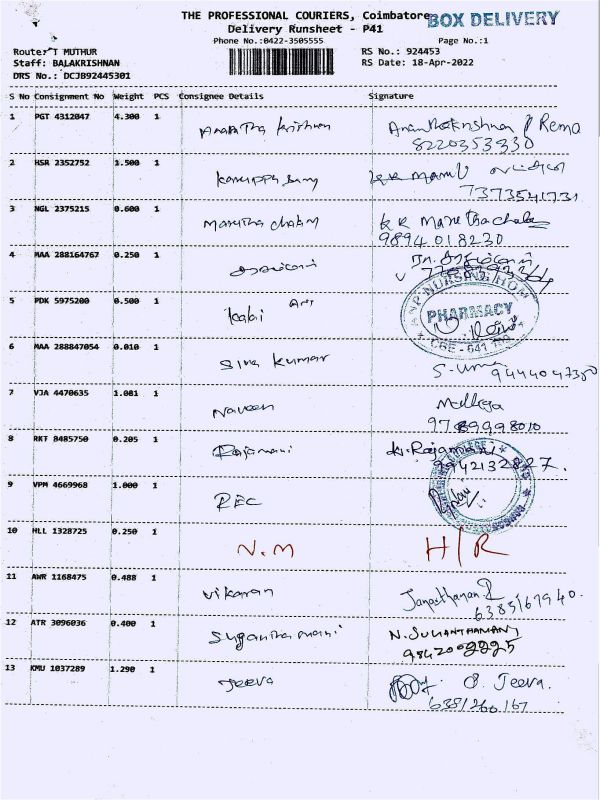 THE PROFESSIONAL COURIERS, Coimbatore
BOX DELIVERY
Delivery Runsheet - P41
Phone No.:0422-3505555 Page No.:1
Router T MUTHUR RS No.: 924453
Staff: BALAKRISHNAN RS Date: 18-Apr-2022
DRS No.: DCJB92445301
S No Consignment No Weight PCS Consignee Details Signature
1 PGT 4312047 4.300 1 Anantha krishnan Ananthakrishnan Rema
8220353330
2 HSR 2352752 1.500 1
7373541731
3 NGL 2375215 0.600 1 Marutha chalam K R Maruthachala
9894018230
4 MAA 288164767 0.250 1
5 PDK 5975200 0.500 1 kabi
NURSING HOM
PHARMACY
CBE - 641
6 MAA 288847054 0.010 1 Siva kumar S. Uma
9444047380
7 VJA 4470635 1.081 1 Naveen Mallega
9789998010
8 RKT 8485750 0.205 1 Rajamani K. Rajamani
9942132827.
9 VPM 4669968 1.000 1 REC
10 HLL 1328725 0.250 1 N.M H/R
11 AWR 1168475 0.488 1 Vikaran Janarthanan R
6385167940.
12 ATR 3096036 0.400 1 Suganthamani N. SUGANTHAMANI
9842008225
13 KMU 1037289 1.290 1 Jeeva P. Jeeva.
6381260167